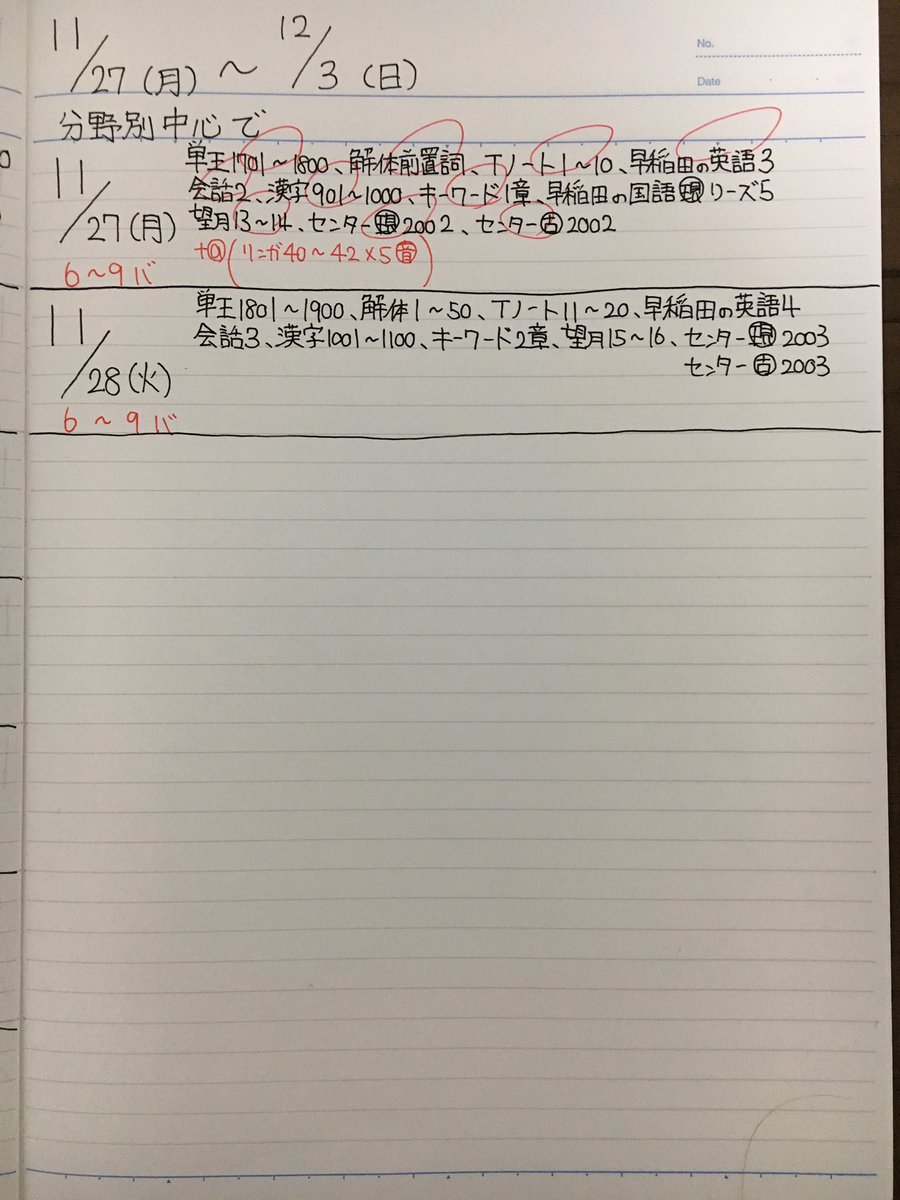 No.
Date
11/27(月)～12/3(日)
分野別中心で
11/27(月)
6～9バ
単王1701～1800、解体前置詞、Tノート1～10、早稲田の英語3
会話2、漢字901～1000、キーワード1章、早稲田の国語㊞リーズ5
望月13～14、センター現2002、センター古2002
+α(リンガ40～42×5音)
11/28(火)
6～9バ
単王1801～1900、解体1～50、Tノート11～20、早稲田の英語4
会話3、漢字1001～1100、キーワード2章、望月15～16、センター現2003
センター古2003